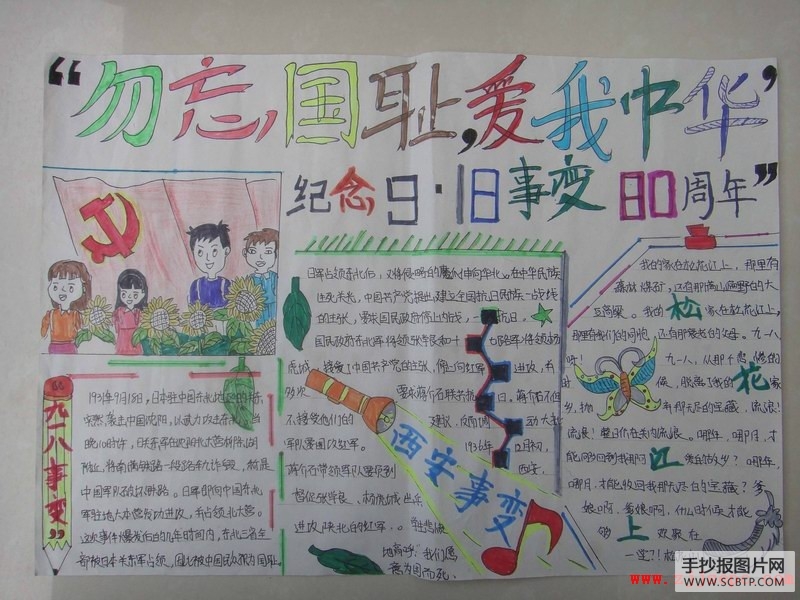 “勿忘国耻，爱我中华，
纪念9·18事变80周年”
“九一八事变”
1931年9月18日，日本驻中国东北地区的
突然袭击中国沈阳，以武力攻占东北。当
晚10时许，日关东军在沈阳北大营
附近，将南满铁路一段路轨炸毁，
中国军队破坏铁路。日军即向中国东北
军驻地大本营发动进攻，并占领北大营。
这次事件爆发后的几年时间内，东北三省全
部被日本关东军占领，因此被中国民众视为国耻
日军占领东北后，又将侵略的魔爪伸向华北。在中华民族
危亡关头，中国共产党提出建立全国抗日民族统一战线
的主张，要求国民政府停止内战，一致抗日。
国民政府东北军将领张学良和十七路军将领杨
虎城接受了中国共产党的主张，停止向红军进攻，并
多次要求蒋介石联共抗日。蒋介石不但
不接受他们的建议，反而调动大
军队要围攻红军。1936年12月初，
蒋介石带领军队要员到西安，
督促张学良、杨虎城出兵
进攻陕北的红军。
我们愿
意为国而死。
西安事变
我的家在松花江上，那里有
森林煤矿，还有那满山遍野的大
豆高粱。我的家在松花江上，
那里有我们的同胞，还有那衰老的爹娘。九一八
九一八，从那个悲惨的时
候，脱离了我的家
乡，抛弃那无尽的宝藏，流浪！
流浪！整日价在关内流浪。哪年，哪月，才
能够回到我那可爱的故乡？哪年，
哪月，才能收回我那无尽的宝藏？爹
娘啊，爹娘啊，什么时候才能
够欢聚在
一堂？！
松
花
江
上
手抄报图片网
WWW.SCBTP.COM